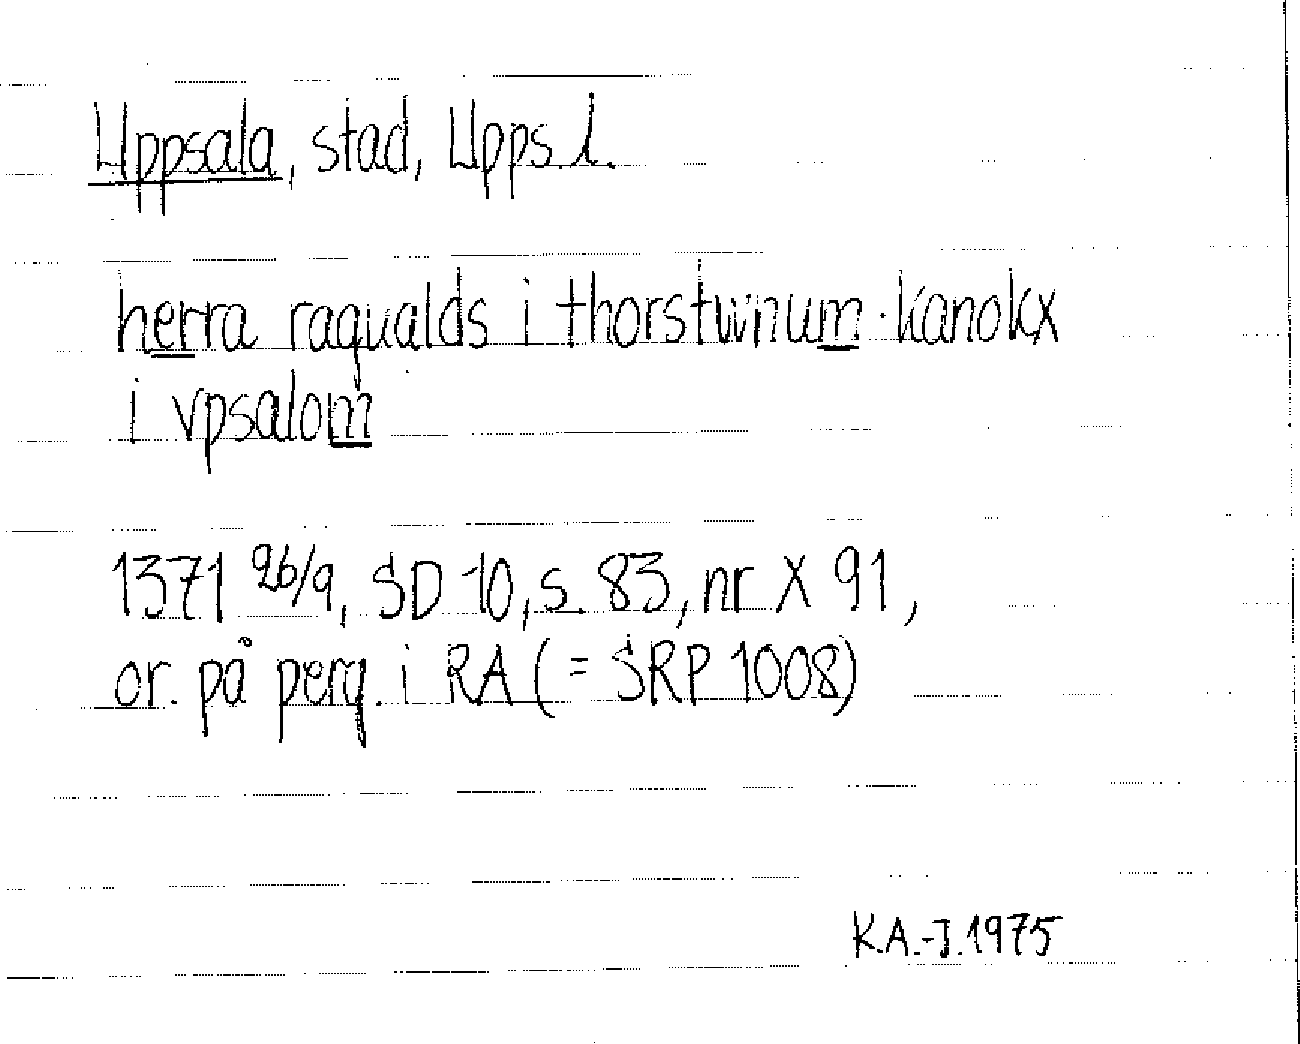 Uppsala, stad, Upps. l.
herra raqualds i thorstwnum · kanokx
i vpsalom
1371 26/9, SD 10, s. 83, nr X 91,
or. på perg. i RA (= SRP 1008)
K.A.-J. 1975